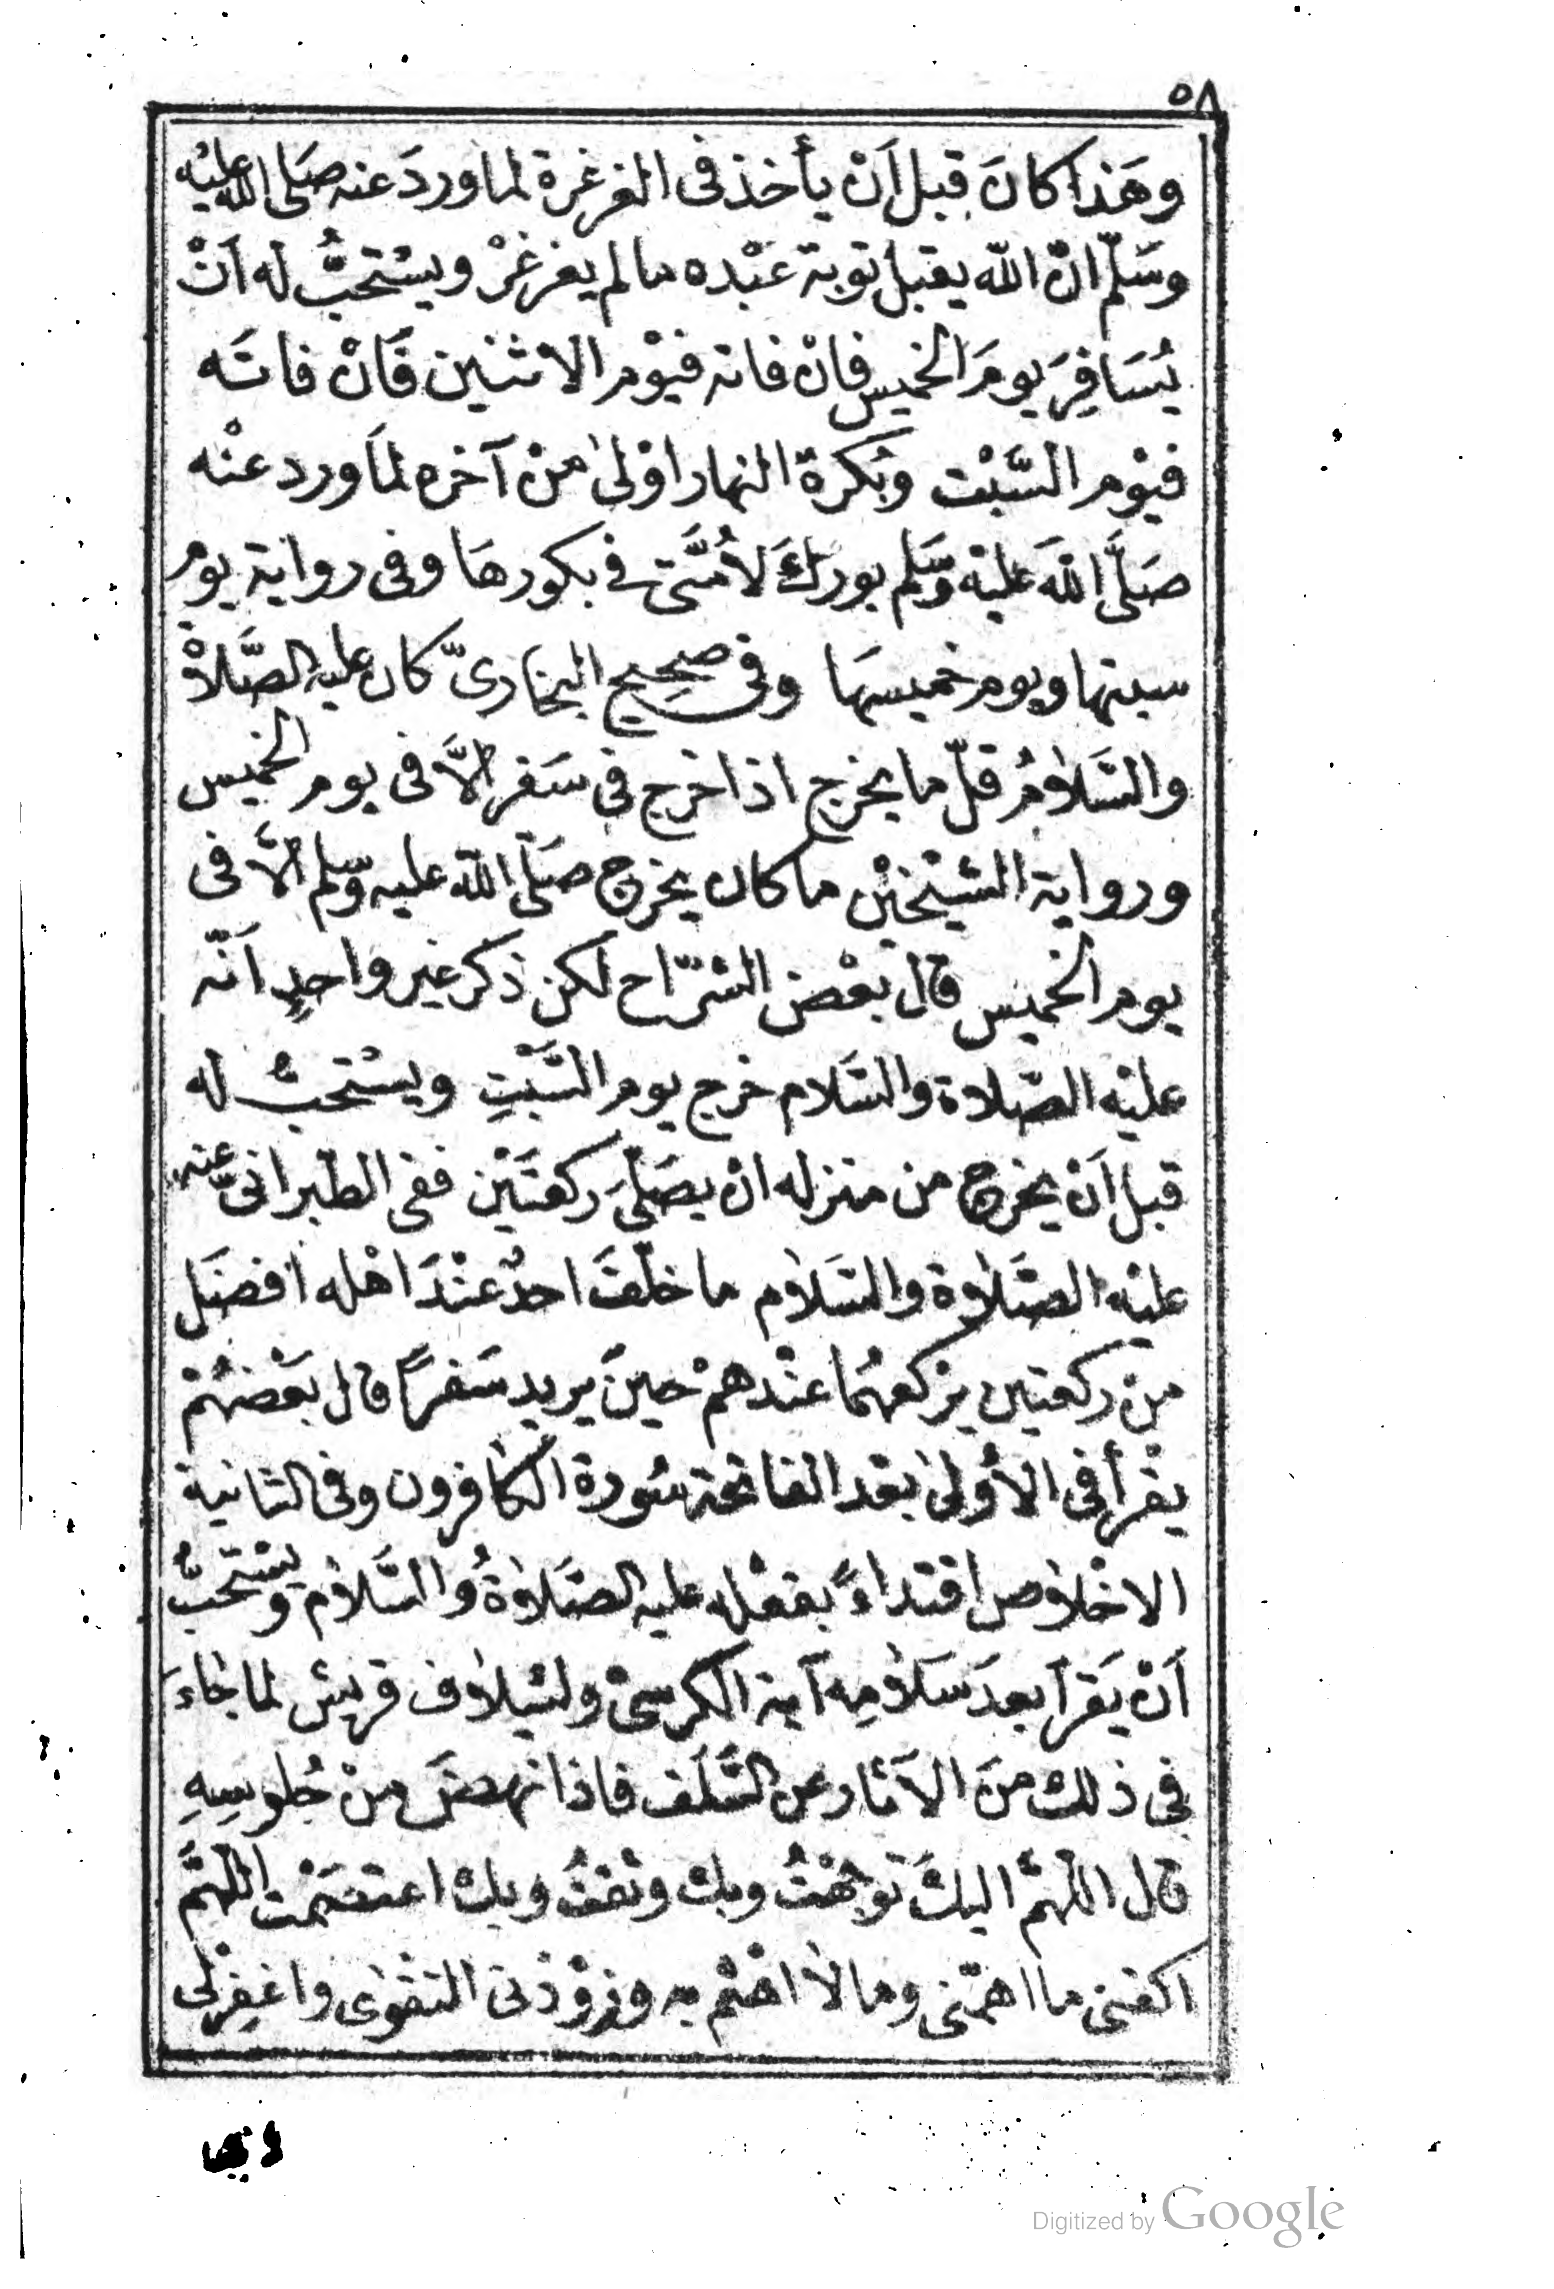 ٥٨
وهَذا كانَ قبل اَنْ يأخذ فى الغرغرة لما وردَ عنه صَلى الله عليْه
وسَلّم انّ الله يقبل توبة عَبْده ما لم يغرغرْ ويسْتحبُّ له اَنْ
يُسَافِرَ يومَ الخميس فانْ فاته فيوْم الاثنين فَانْ فاتَه
فيوْم السَّبْت وبُكرة النهار اوْلىٰ منْ آخره لمَا ورد عنْه
صَلَّى اللهَ عليْه وسَّلم بوركَ لأُمَّتى فى بكورهَا وفى رواية يوم
سبتها ويوم خميسهَا وفى صحِيح البخارىّ كان عليه الصَّلاةْ
والسَّلامُ قلّ ما يخرج اذا خرج فى سَفر الَّا فى يوم الخميس
ورواية الشيْخيْن ما كان يخرج صَلّى الله عليه وسلم الَّا فى
يوم الخميس قال بعْض الشرّاح لكن ذكر غير واحدٍ اَنّه
عليْه الصّلاة والسَّلام خرج يوم السَّبْتِ ويسْتحبُّ له
قبل اَنْ يخرج من منزله انْ يصَلّىَ ركعتَيْن ففى الطبرانىّ عنه
عليْه الصَّلاة والسَّلام ما خلّفَ احدٌ عنْدَ اهْله افضَل
منْ ركعتين يركعهُما عنْدهمْ حينَ يريد سَفرًا قال بَعْضهُمْ
يقْرأ فى الأُولىٰ بعْد الفاتحة سُورة الكافرون وفى الثانية
الاخْلاص اقتداءً بفعْله عليه الصَّلاةُ والسَّلام ويسْتحبُّ
اَنْ يَقرأ بعدَ سَلامِه آية الكرسىّ ولئيلاف قريش لما جَاءَ
فى ذلك منَ الآثار عن السَّلَف فاذا نهضَ منْ جُلوسِهِ
قال اللهمّ اليكَ توجّهْتُ وبك وثقتُ وبك اعتصَمْت اللهمَّ
اكفنى ما اهمّنى وما لا اهْتم به وزوْدْنى التقْوىٰ واغفِرْلى
ذنبى
Digitized by Google